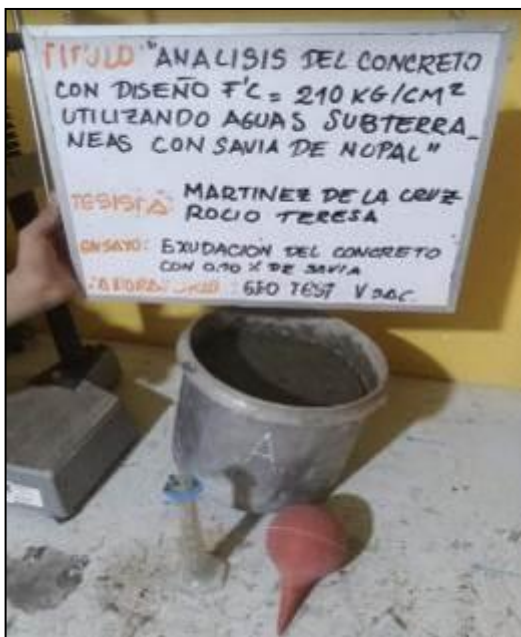 TITULO "ANALISIS DEL CONCRETO
CON DISEÑO F'C = 210 KG/CM²
UTILIZANDO AGUAS SUBTERRA_
NEAS CON SAVIA DE NOPAL"
TESISTA: MARTINEZ DE LA CRUZ
ROCIO TERESA
ENSAYO: EXUDACIÓN DEL CONCRETO
CON 0.70 % DE SAVIA
LABORATORIO: GEO TEST V SAC.
A